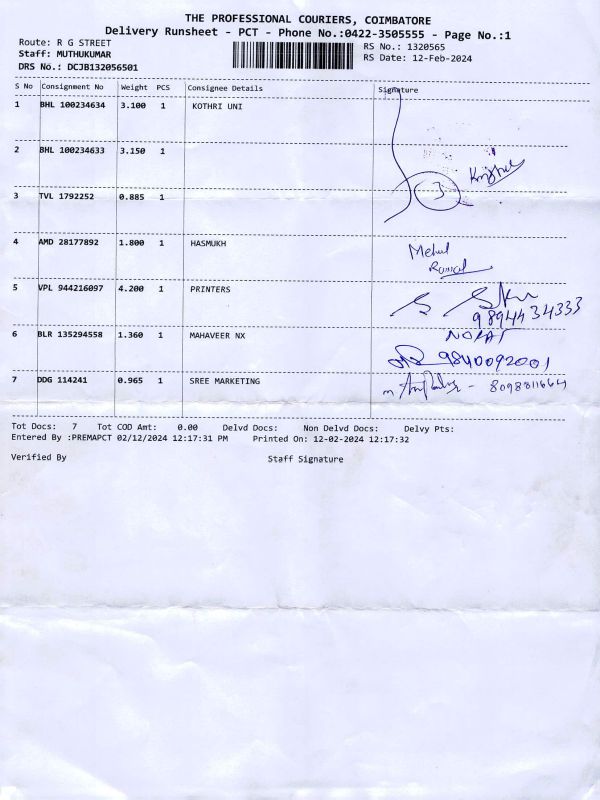 THE PROFESSIONAL COURIERS, COIMBATORE
Delivery Runsheet - PCT - Phone No.:0422-3505555 - Page No.:1
Route: R G STREET
Staff: MUTHUKUMAR
DRS No.: DCJB132056501
RS No.: 1320565
RS Date: 12-Feb-2024
S No Consignment No Weight PCS Consignee Details Signature
1 BHL 100234634 3.100 1 KOTHRI UNI
2 BHL 100234633 3.150 1
3 TVL 1792252 0.885 1
3
4 AMD 28177892 1.800 1 HASMUKH
Mehul
5 VPL 944216097 4.200 1 PRINTERS
9894434333
6 BLR 135294558 1.360 1 MAHAVEER NX
9840092001
7 DDG 114241 0.965 1 SREE MARKETING
8098811664
Tot Docs: 7 Tot COD Amt: 0.00 Delvd Docs: Non Delvd Docs: Delvy Pts:
Entered By :PREMAPCT 02/12/2024 12:17:31 PM Printed On: 12-02-2024 12:17:32
Verified By Staff Signature